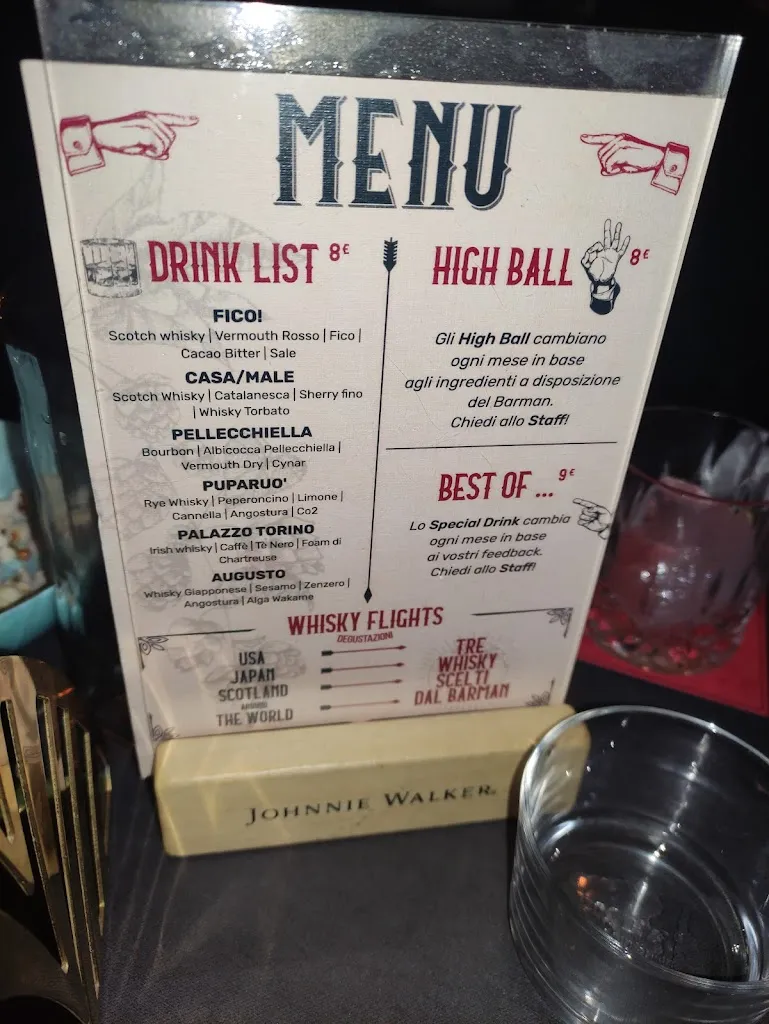 MENU
DRINK LIST 8€
FICO!
Scotch whisky | Vermouth Rosso | Fico |
Cacao Bitter | Sale
CASA/MALE
Scotch Whisky | Catalanesca | Sherry fino
| Whisky Torbato
PELLECCHIELLA
Bourbon | Albicocca Pellecchiella |
Vermouth Dry | Cynar
PUPARUO'
Rye Whisky | Peperoncino | Limone |
Cannella | Angostura | Co2
PALAZZO TORINO
Irish whisky | Caffè | Tè Nero | Foam di
Chartreuse
AUGUSTO
Whisky Giapponese | Sesamo | Zenzero |
Angostura | Alga Wakame
HIGH BALL 8€
Gli High Ball cambiano
ogni mese in base
agli ingredienti a disposizione
del Barman.
Chiedi allo Staff!
BEST OF ... 9€
Lo Special Drink cambia
ogni mese in base
ai vostri feedback.
Chiedi allo Staff!
WHISKY FLIGHTS
DEGUSTAZIONI
USA
JAPAN
SCOTLAND
AROUND
THE WORLD
TRE
WHISKY
SCELTI
DAL BARMAN
JOHNNIE WALKER